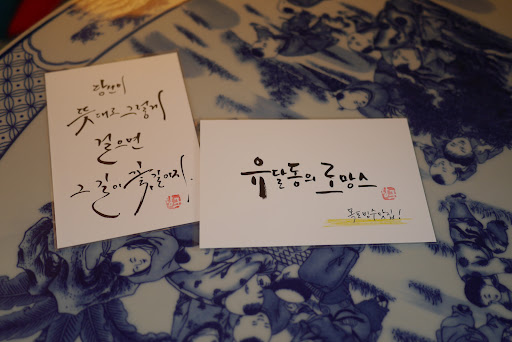 당신이
뜻대로 그렇게
걸으면
그 길이 꽃길이지.
유달동의 로망스
목포맛수맛집!